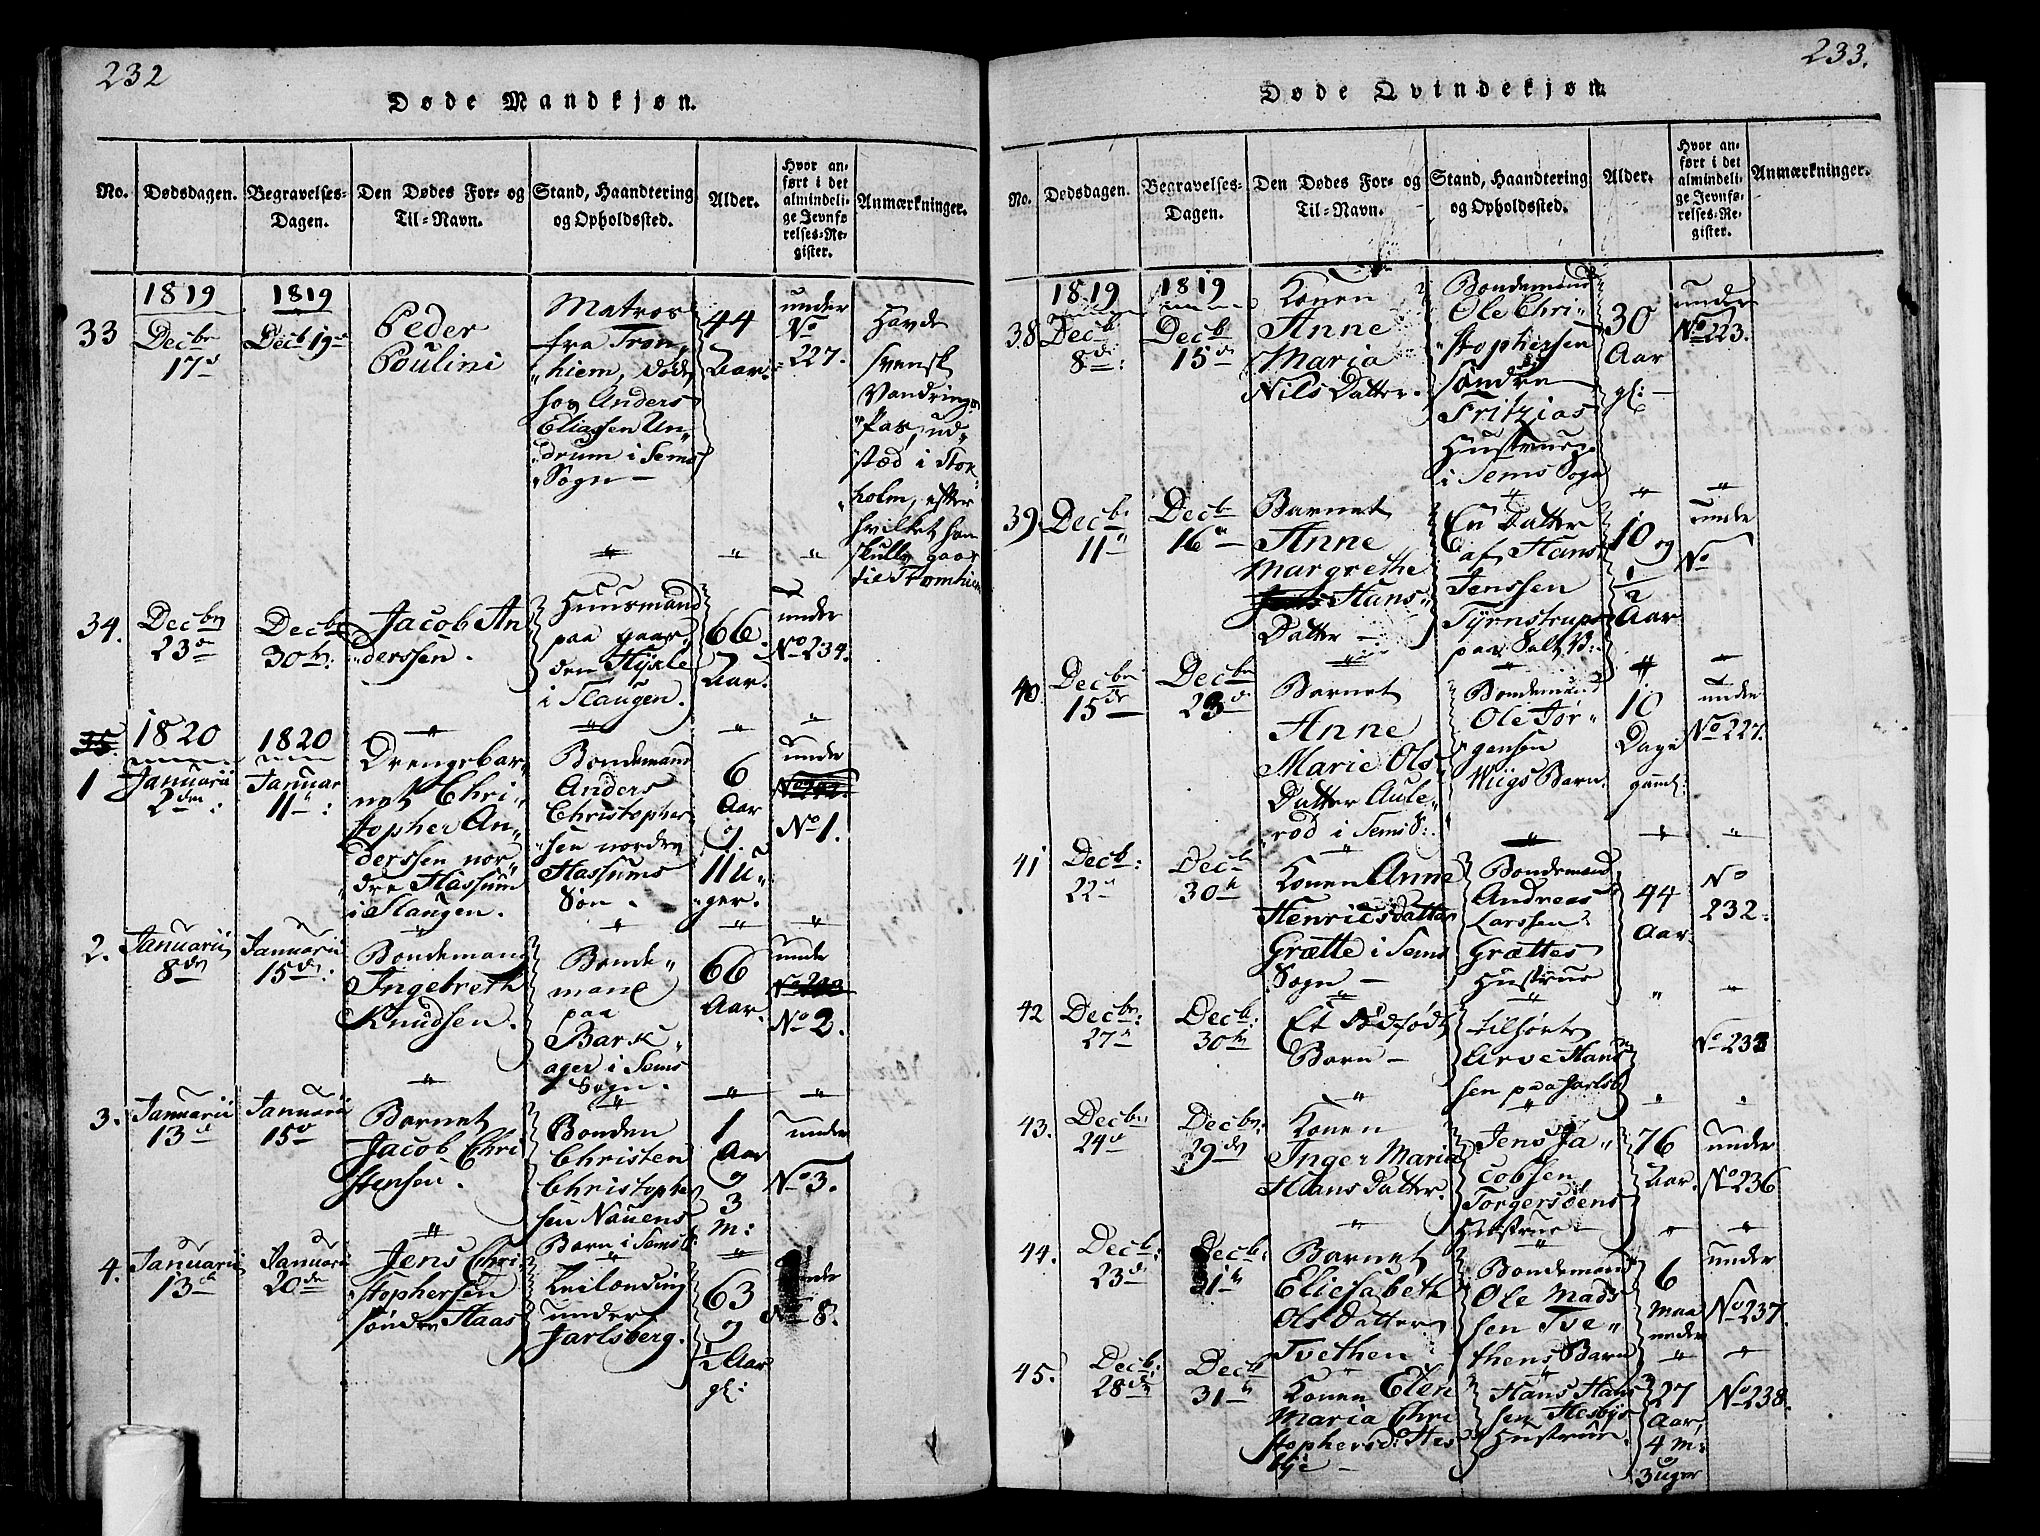 232
Døde Mandkjøn.
No.
Dødsdagen.
Begravelses-
Dagen.
Den Dødes For- og
Til-Navn.
Stand, Haandtering
og Opholdssted.
Alder.
Hvor an-
ført i det
almindeli-
ge Jevnfø-
relses-Re-
gister.
Anmærkninger.
33
1819
Decbr
17d
1819
Decb 19
Peder
Poulini
Matros
fra Tron-
hiem, døde
hos Anders
Eliassen Un-
drum i Sems
Sogn
44
Aar.
under
No
227.
Havde
svensk
Vandrings
Pas, ud-
stæd i Stok-
holm, efter
hvilket han
skulle gaae
til Tronhiem
34.
Decbr
23
Decbr
30
Jacob An
derssen.
Huusmand
paa gaar
den Hykle
i Slaugen.
66
Aar.
under
No 234.
35.
1
1820
Januarii
2den
1820
Januar
11
Drengebar-
net Chri-
stopher An-
derssen nor-
dre Hassum
i Slaugen.
Bondemand
Anders
Christopher-
sen nordre
Hassums
Søn.
6
Aar
og
11 U-
ger.
under
No 1.
2.
Januarii
8de
Januarii
15de
Bondemand
Ingebreth
Knudsen.
Bonde-
mand
paa
Bark-
ager i Sems
Sogn.
66
Aar.
under
No 2.
3.
Januarii
13d
Januarii
15
Barnet
Jacob Chri
stensen.
Bonden
Christen
Christopher
sen Nauens
Barn i Sems S.
1
Aar
og
3
M:
under
No 3.
4.
Januarii
13d
Januarii
20de
Jens Chri-
stophersen
søndre Haas
under
Jarlsberg.
63
og
1/2 Aar
gl:
under
No 8.
233.
Døde Qvindekjøn.
No.
Dødsdagen.
Begravelses-
Dagen.
Den Dødes For- og
Til-Navn.
Stand, Haandtering
og Opholdssted.
Alder.
Hvor an-
ført i det
almindeli-
ge Jevnfø-
relses-Re-
gister.
Anmærkninger.
38
1819
Decb
8d:
1819
Decb
15d
Konen
Anne
Maria
Nils Datter.
Bondemand
Ole Chri-
stophersen
søndre
Fritzøas
Hustrue
i Sems Sogn
30
Aar
gl:
under
No 223.
39.
Decbr
11
Decb
16
Barnet
Anne
Margrethe
Hans-
Datter
En Datter
af Hans
Jenssen
Tyrnstrup
paa Valt B:
10 og
1/2
Aar
under
No
40.
Decbr
15de
Decbr
23d
Barnet
Anne
Marie Ols
Datter Aule-
rød i Sems S:
Bondemand
Ole Jør-
gensen
Wiigs Barn
10
Dage
gaml:
under
No 227.
41
Decb:
22
Decb
30
Konen Anne
Henricsdatter
Grætte i Sems
Sogn
Bondemand
Andreas
Larssen
Grættes
Hustrue
44
Aar.
No
232.
42
Decbr:
27
Decb:
30
Et dødfødt
Barn
tilhørte
Arve Hans
sen paa Jarlsb
No 233
43.
Decbr
24
Decbr:
29de
Konen
Inger Maria
Hans datter.
Jens Ja-
cobsen
Torgersdens
Hustrue
76
Aar.
under
No 236
44.
Decb:
23d
Decb:
31
Barnet
Eliesabeth
Ols Datter
Tvethen
Bondemand
Ole Mads
sen Tve-
thens Barn
6
Maa
neder
under
No 237.
45.
Decb:
28de
Decb
31
Konen Elen
Maria Chri
stophersd: Hes
bye
Hans Hans
sen Hesbys
Hustrue.
27
Aar,
4 M:
3 Uger
No 238.